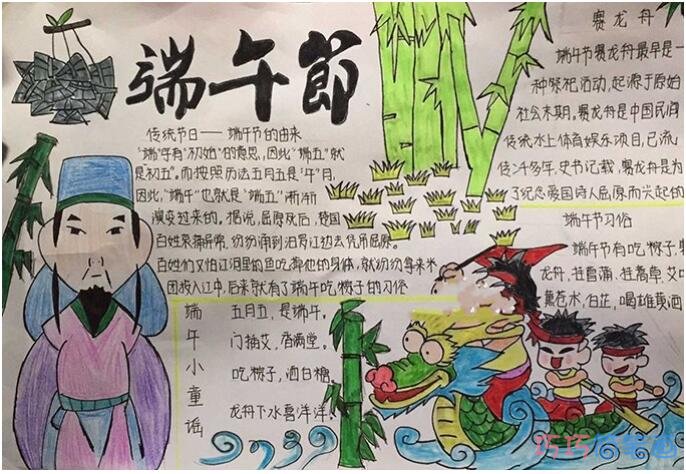 端午節
传统节日——端午节的由来
"端"字有"初始"的意思，因此"端五"就
是初五。而按照历法五月五是"午"月，
因此，"端午"也就是"端五"渐渐
演变过来的。据说，屈原死后，楚国
百姓哀痛异常，纷纷涌到汨罗江边去凭吊屈原。
百姓们又怕江里的鱼吃掉他的身体，就纷纷拿来米
团投入江中，后来就有了端午吃粽子的习俗
端午小童谣
五月五，是端午。
门插艾，香满堂。
吃粽子，洒白糖。
龙舟下水喜洋洋。
赛龙舟
端午节赛龙舟最早是一
种祭祀活动，起源于原始
社会末期。赛龙舟是中国民间
传统水上体育娱乐项目，已流
传二千多年，史书记载，赛龙舟是为
了纪念爱国诗人屈原而兴起的
端午节习俗
端午节有吃粽子，赛
龙舟，挂菖蒲，挂蒿草，艾叶
薰苍术，白芷，喝雄黄酒
巧巧简笔画